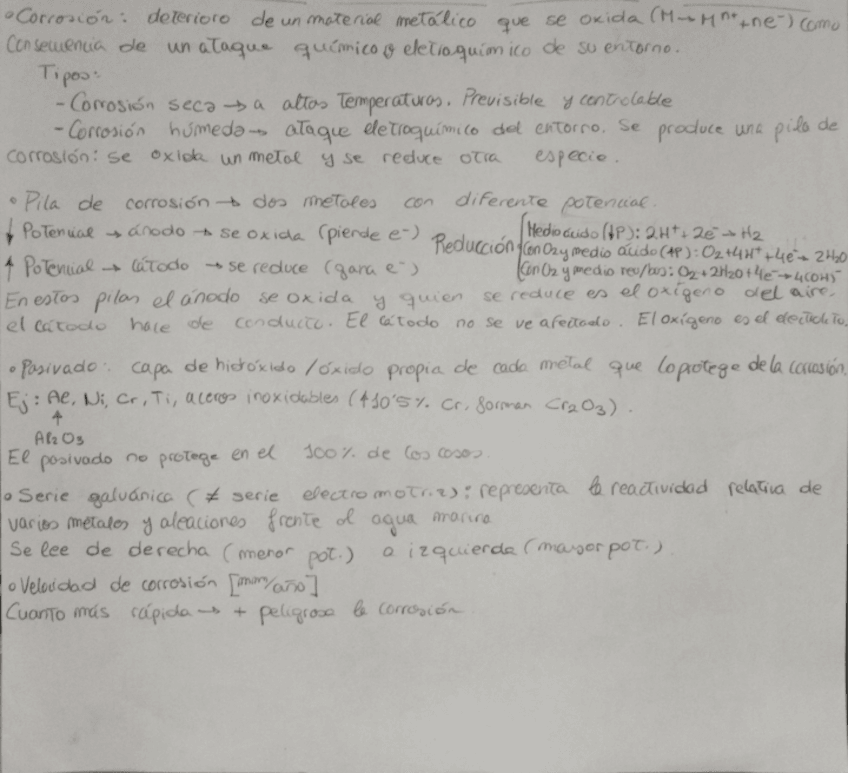 • Corrosión: deterioro de un material metálico que se oxida (M → Mⁿ⁺ + ne⁻) como
consecuencia de un ataque químico o eletroquímico de su entorno.
Tipos:
- Corrosión seca → a altas temperaturas. Previsible y controlable
- Corrosión húmeda → ataque eletroquímico del entorno. Se produce una pila de
corrosión: se oxida un metal y se reduce otra especie.
• Pila de corrosión → dos metales con diferente potencial.
↓ Potencial → ánodo → se oxida (pierde e⁻)
↑ Potencial → cátodo → se reduce (gana e⁻)
Reducción
Medio ácido (↓P): 2H⁺ + 2e⁻ → H₂
Con O₂ y medio ácido (↑P): O₂ + 4H⁺ + 4e⁻ → 2H₂O
Con O₂ y medio neu/bas: O₂ + 2H₂O + 4e⁻ → 4(OH)⁻
En estas pilas el ánodo se oxida y quien se reduce es el oxígeno del aire,
el cátodo hace de conducto. El cátodo no se ve afectado. El oxígeno es el electrolito.
• Pasivado: capa de hidróxido / óxido propia de cada metal que lo protege de la corrosión.
Ej: Al, Ni, Cr, Ti, aceros inoxidables (↑10'5% Cr, forman Cr₂O₃).
↑
Al₂O₃
El pasivado no protege en el 100% de los casos.
• Serie galvánica (≠ serie electromotriz): representa la reactividad relativa de
varios metales y aleaciones frente al agua marina
Se lee de derecha (menor pot.) a izquierda (mayor pot.)
• Velocidad de corrosión [mm/año]
Cuanto más rápida → + peligrosa la corrosión